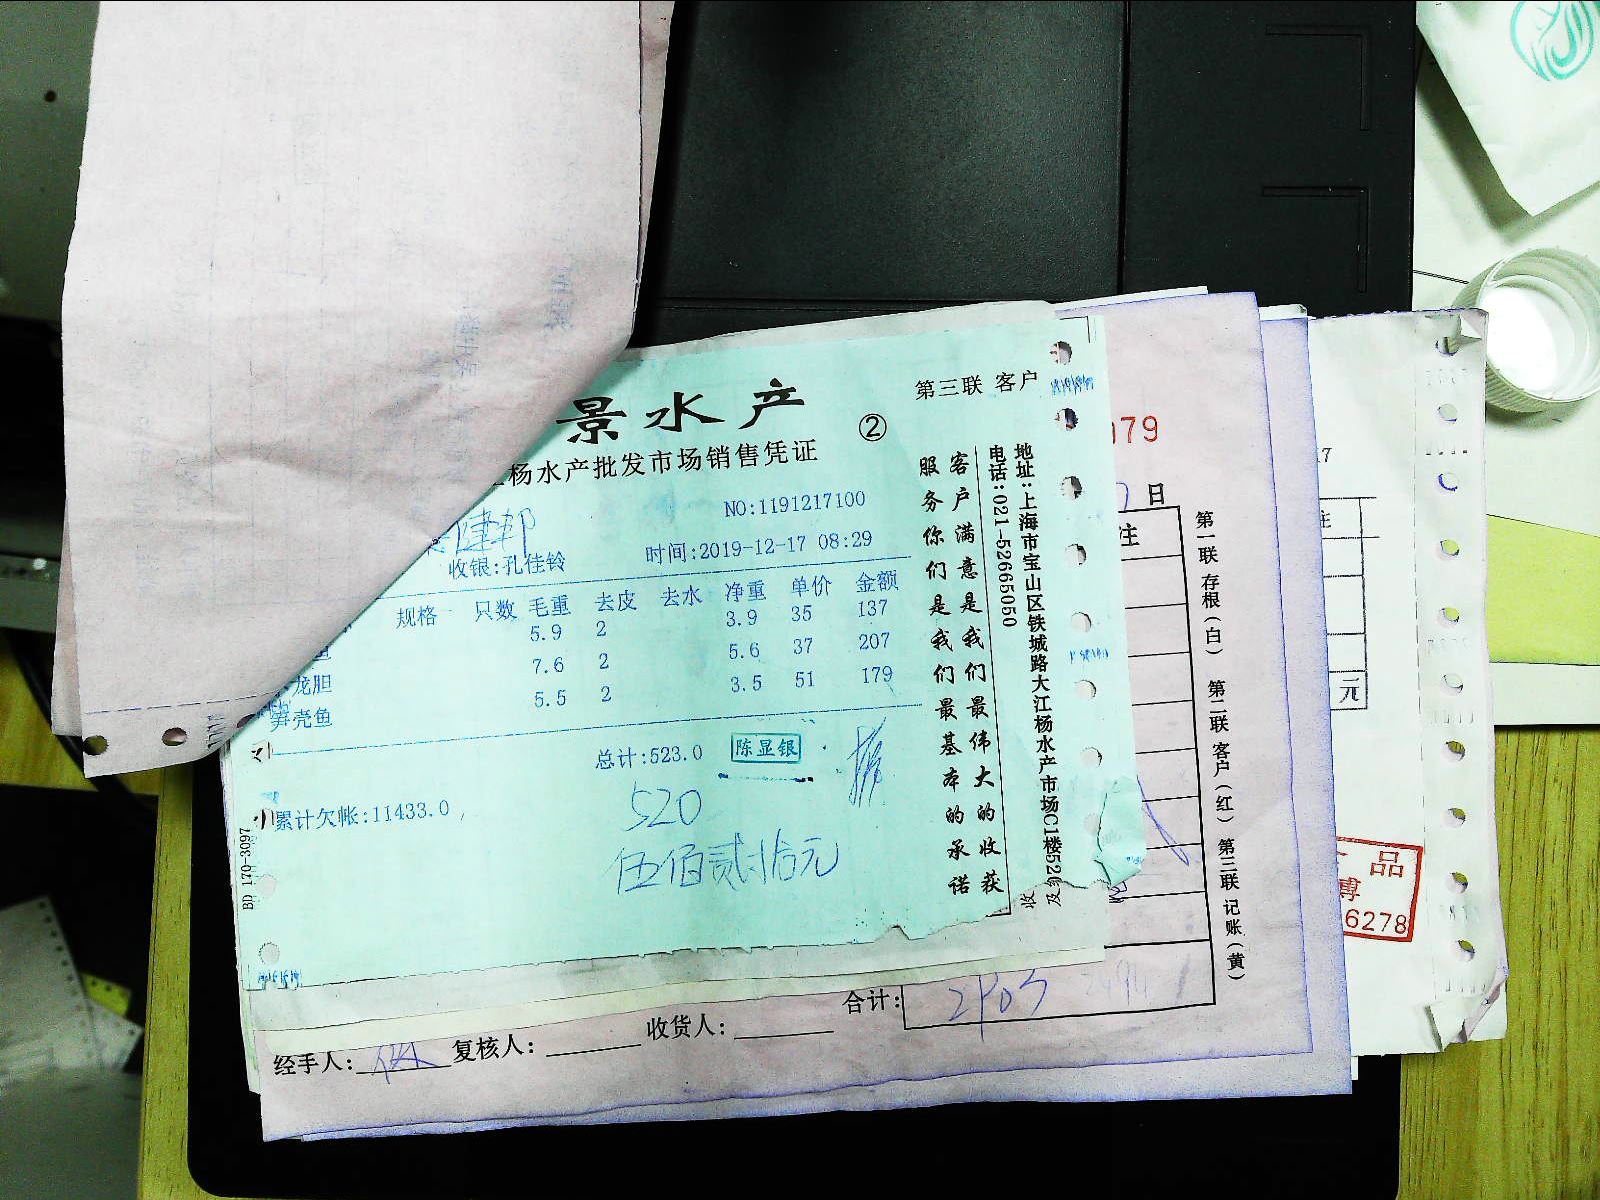 景水产
②
第三联 客户
杨水产批发市场销售凭证
NO:1191217100
建邦
收银:孔佳铃
时间:2019-12-17 08:29
规格 只数 毛重 去皮 去水 净重 单价 金额
5.9 2 3.9 35 137
鱼 7.6 2 5.6 37 207
龙胆 5.5 2 3.5 51 179
笋壳鱼
总计:523.0
陈显银
520
伍佰贰拾元
累计欠帐:11433.0
BD 170-3097
客户满意是我们最伟大的收获
服务你们是我们最基本的承诺
地址:上海市宝山区铁城路大江杨水产市场C1楼52
电话:021-52665050
收
及
79
日
注
第一联 存根(白) 第二联 客户(红) 第三联 记账(黄)
合计:
经手人: 复核人: 收货人:
17
注
元
品
博
6278